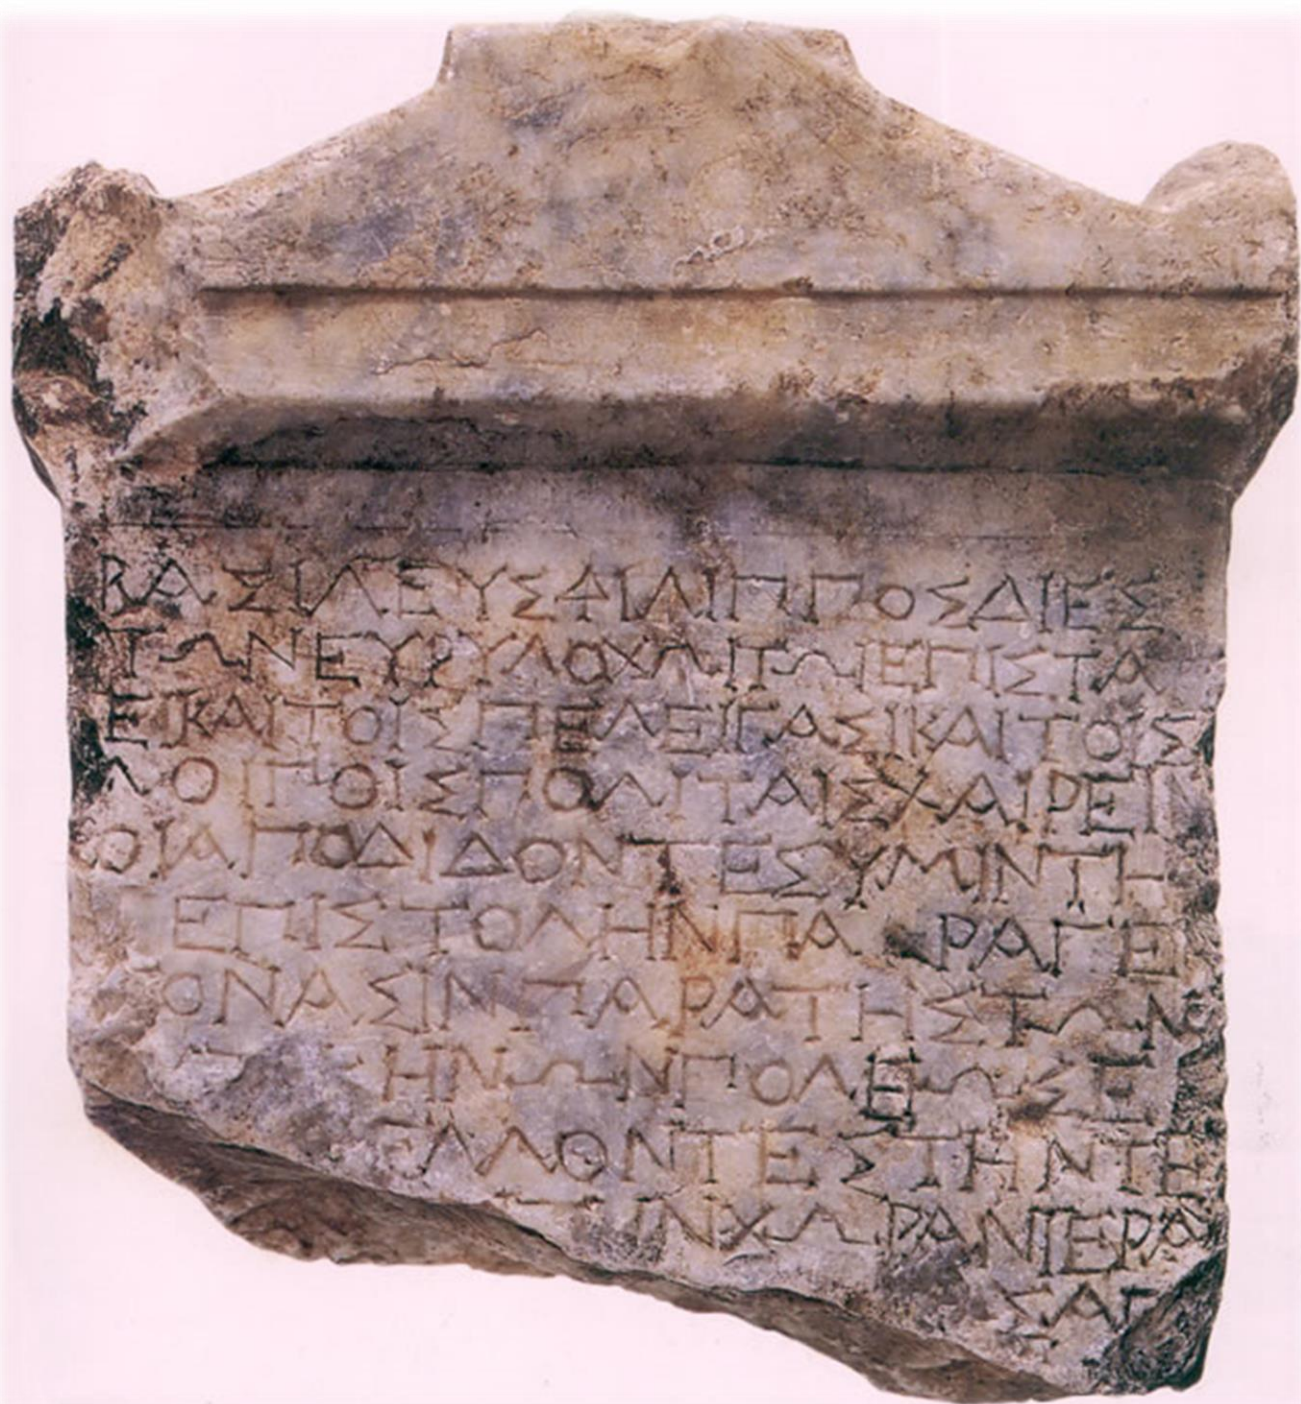 ΒΑΣΙΛΕΥΣΦΙΛΙΠΠΟΣΔΙΕΣ
ΤΩΝΕΥΡΥΛΟΧΩΙΤΩΙΕΠΙΣΤΑ
ΕΙΚΑΙΤΟΙΣΠΕΛΕΙΓΑΣΙΚΑΙΤΟΙΣ
ΛΟΙΠΟΙΣΠΟΛΙΤΑΙΣΧΑΙΡΕΙΝ
ΟΙΑΠΟΔΙΔΟΝΤΕΣΥΜΙΝΤΗ
ΕΠΙΣΤΟΛΗΝΠΑΡΑΓΕ
ΟΝΑΣΙΝΠΑΡΑΤΗΣΤΩΝ
ΗΝΩΝΠΟΛΕΩΣΕ
ΕΛΛΟΝΤΕΣΤΗΝΤΕ
ΙΝΧΩΡΑΝΙΕΡΑ
ΣΑΓ